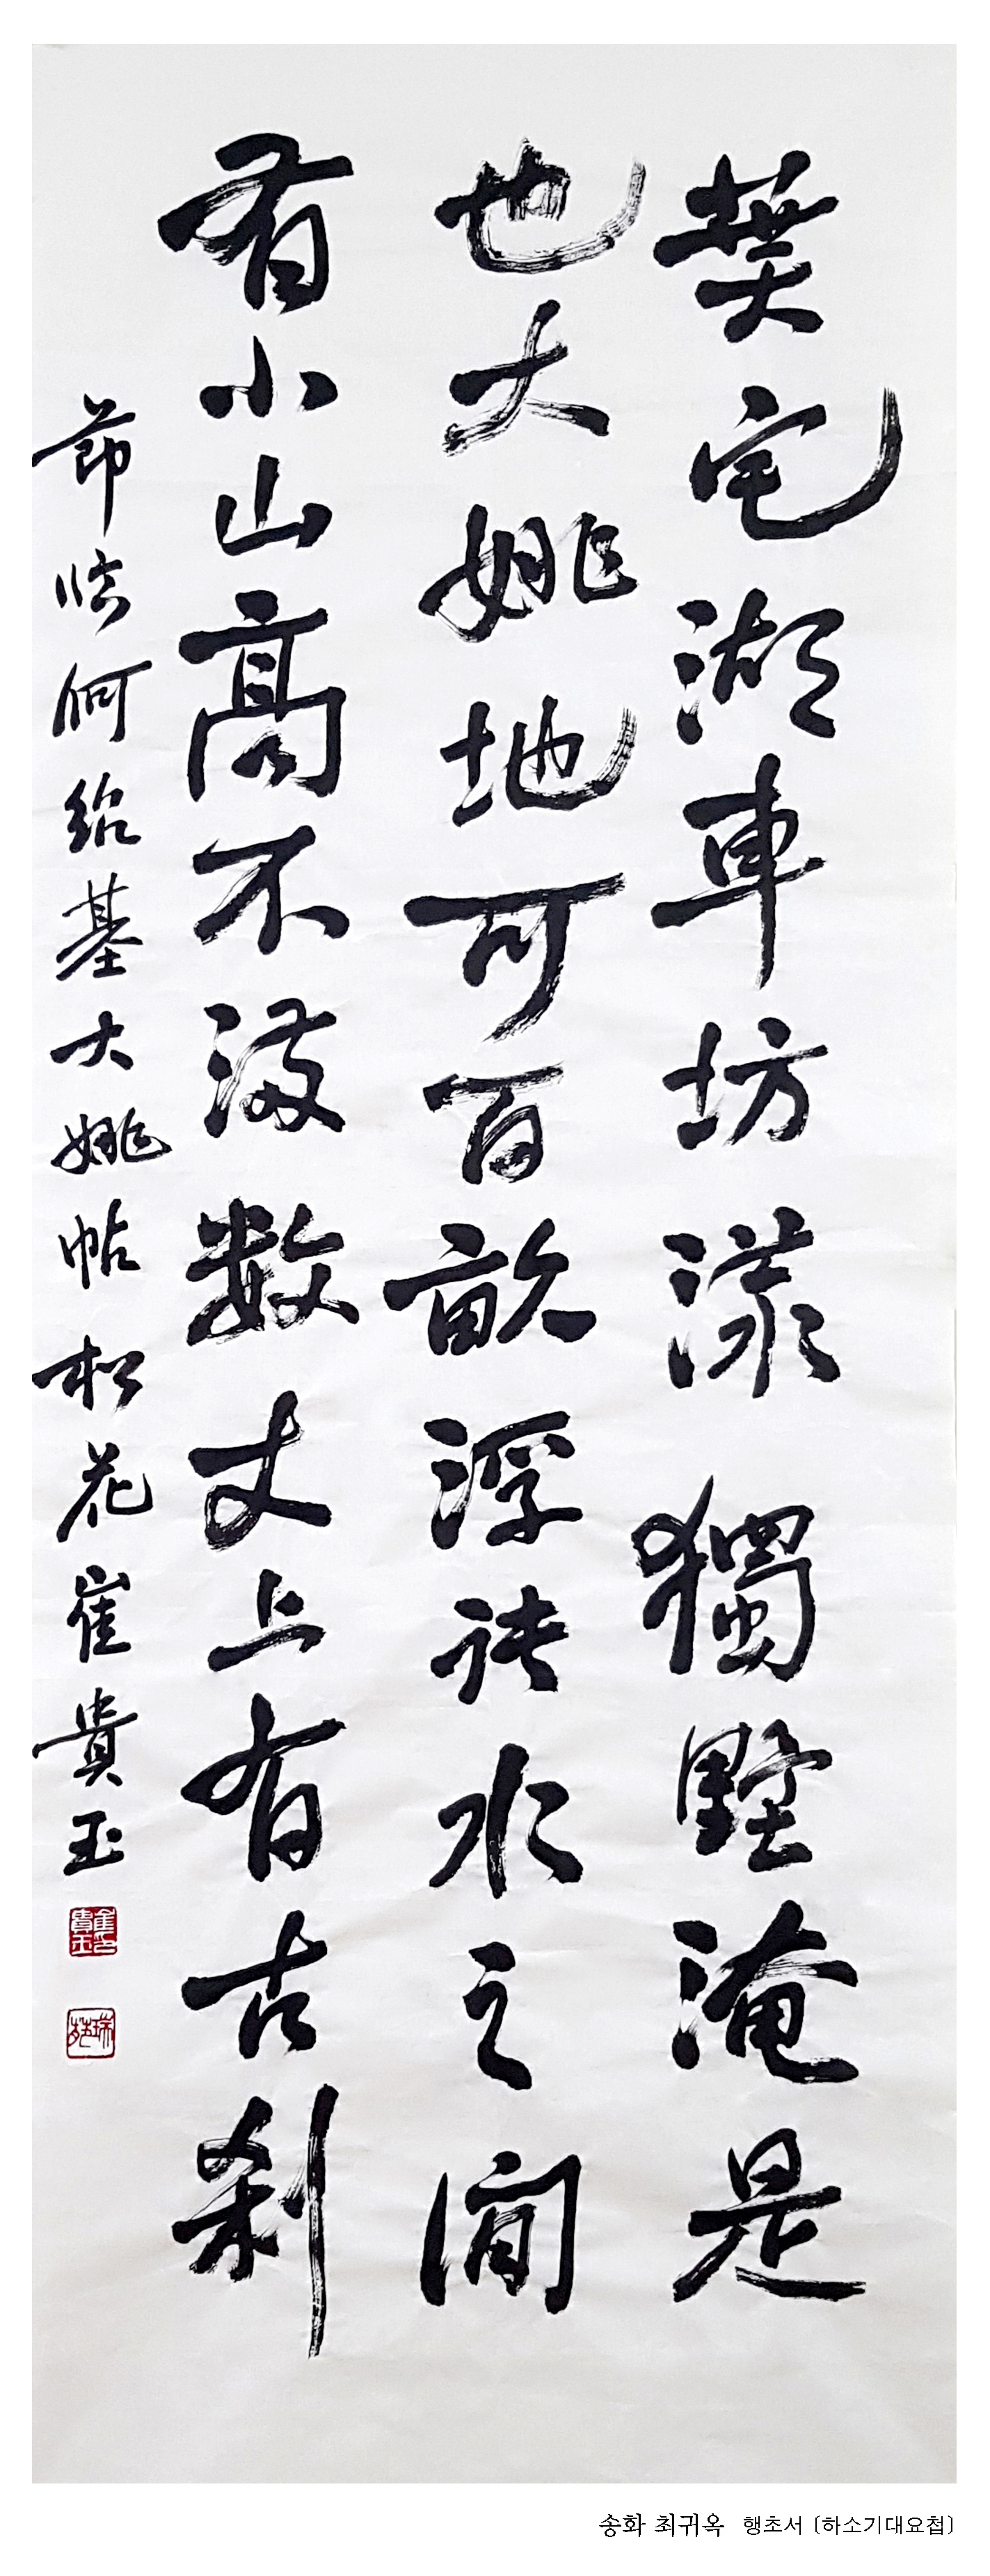 葑宅湖車坊漾獨墅淹是
也大姚地可百畝浮諸水之間
有小山高不滿數丈上有古刹
節臨何紹基大姚帖松花崔貴玉
송화 최귀옥 행초서 [하소기대요첩]